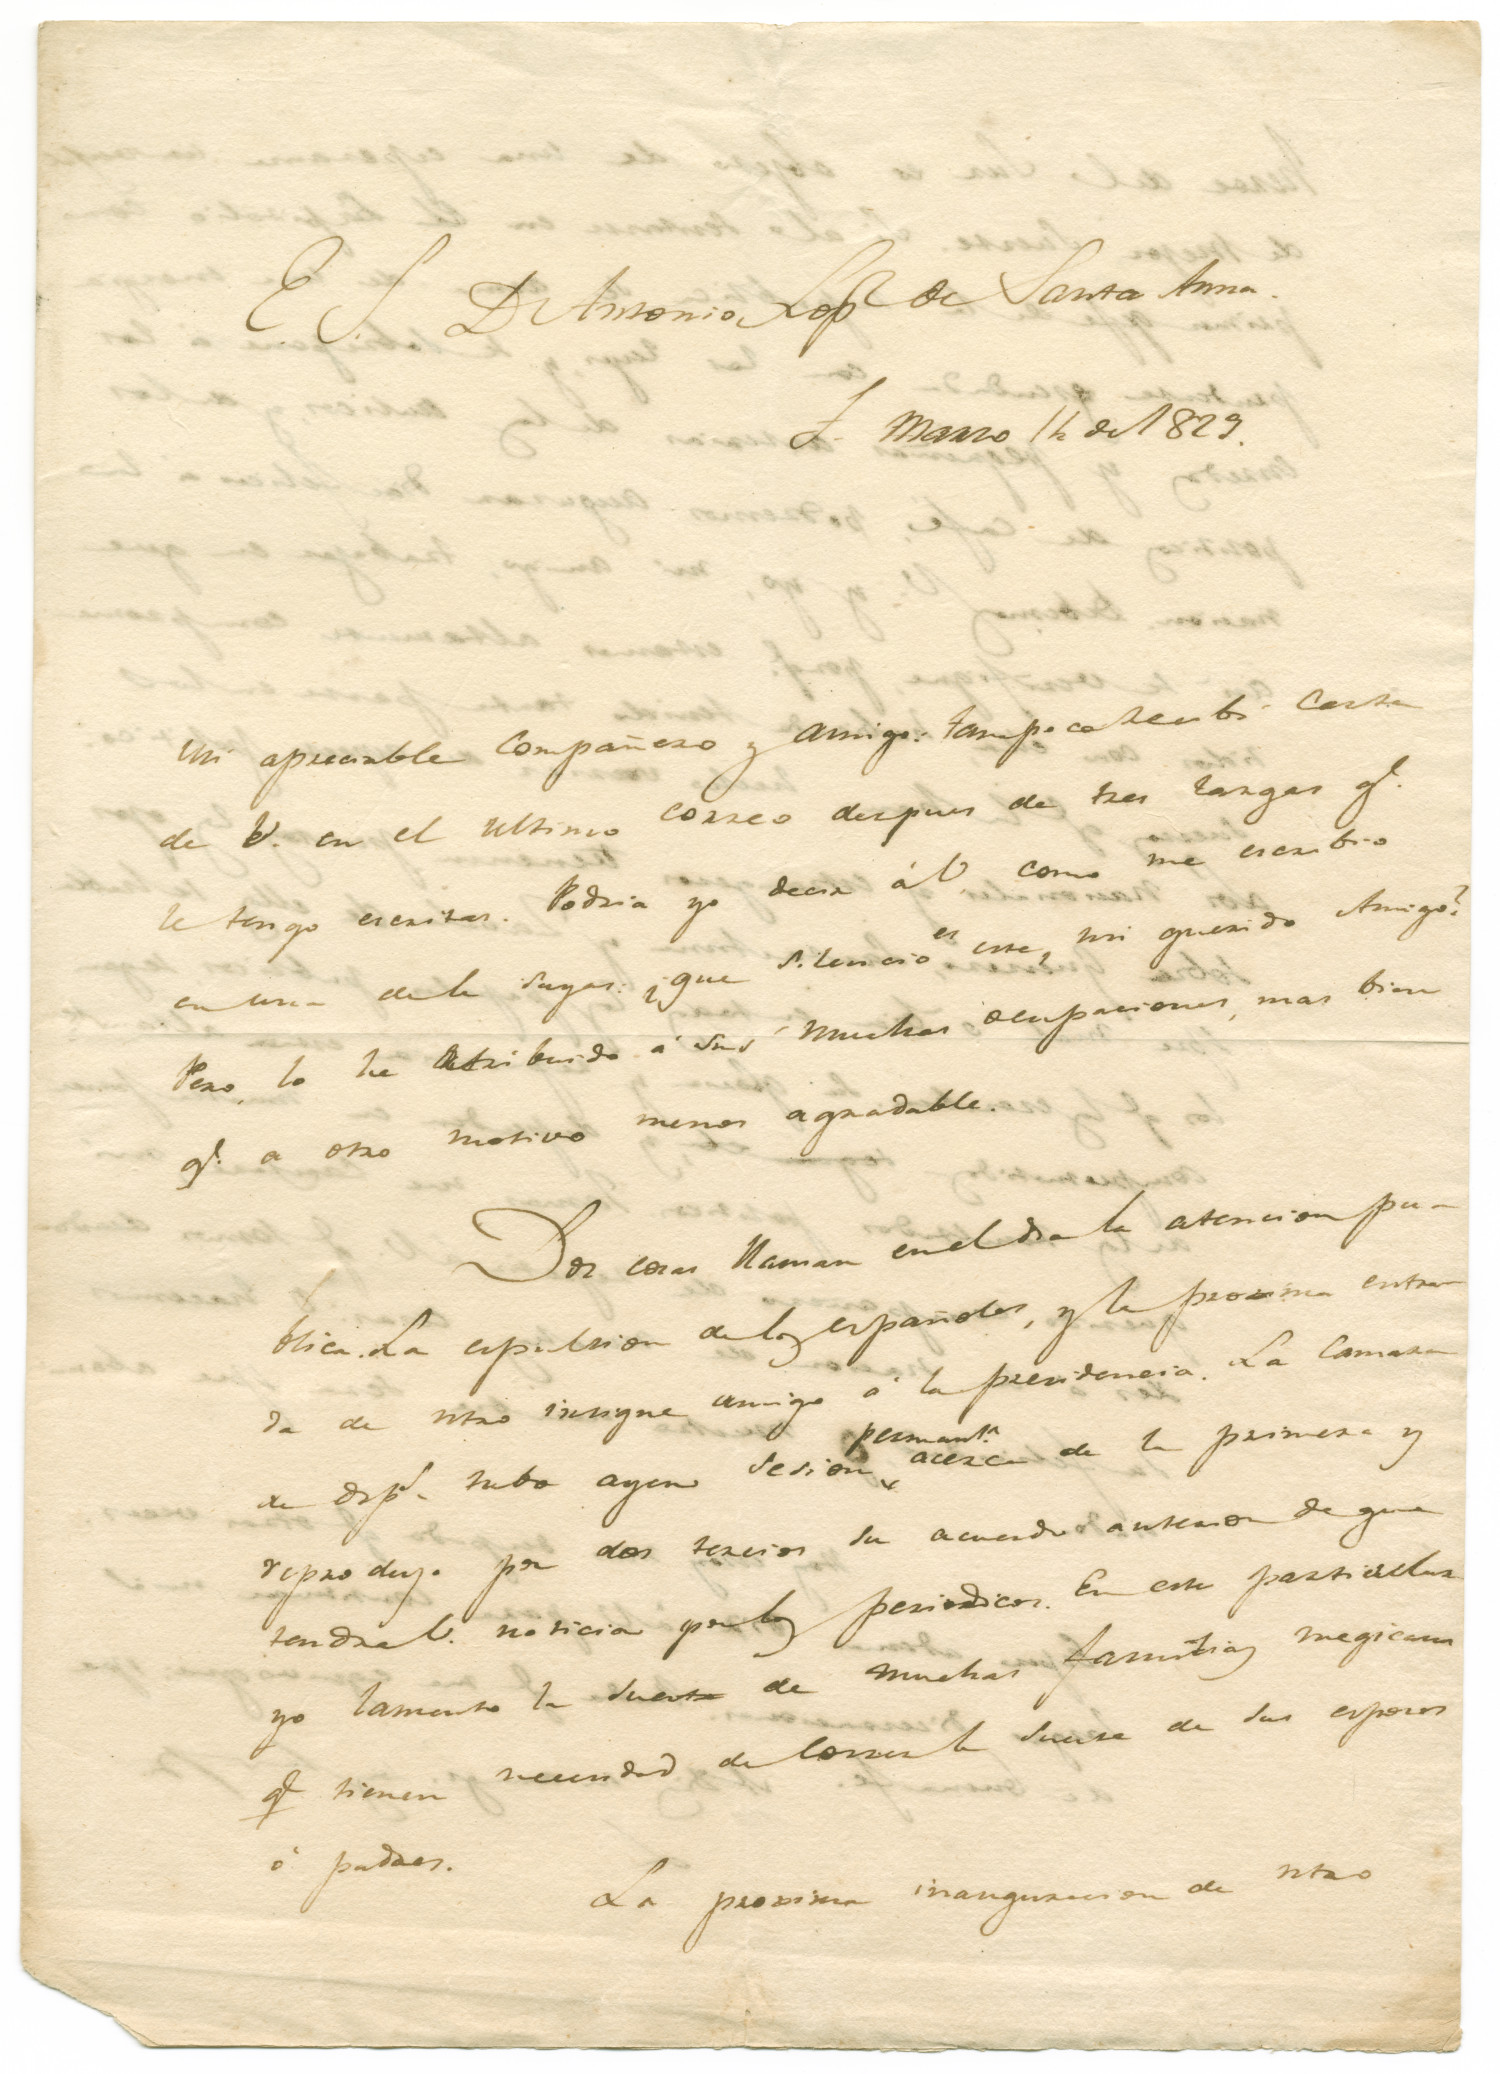 E. S. D. Antonio Lop.z de Santa Anna.
Marzo 14 de 1829.
Mi apreciable Compañero y amigo: tampoco recibi carta
de V. en el ultimo correo despues de tres largas q.e
le tengo escritas. Podria yo decir á V. como me escribio
en una de las suyas: ¿que silencio es este, mi querido Amigo?
Pero, lo he atribuido á sus muchas ocupaciones, mas bien
q.e a otro motivo menos agradable.
Dos cosas llaman en el dia la atencion pu-
blica. La espulsion de los españoles, y la proxima entra-
da de ntro insigne amigo á la presidencia. La Camara
de Dip.s tubo ayer sesion permant.e acerca de la primera y
reprodujo por dos tercios su acuerdo anterior de que
tendra V. noticia por los periodicos. En este particular
yo lamento la suerte de muchas familias megicanas
q.e tienen necesidad de correr la suerte de sus esposos
ó padres.
La proxima inauguracion de ntro